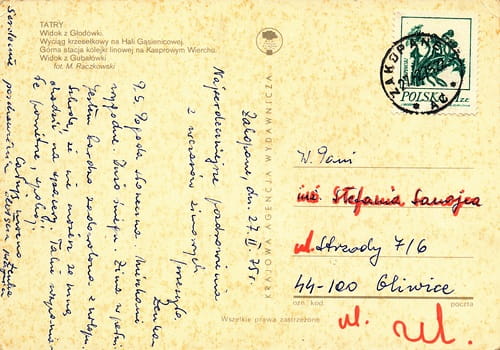 TATRY
Widok z Głodówki.
Wyciąg krzesełkowy na Hali Gąsienicowej.
Górna stacja kolejki linowej na Kasprowym Wierchu.
Widok z Gubałówki
fot. M. Raczkowski
KRAJOWA AGENCJA WYDAWNICZA
ZAKOPANE
POLSKA
1 ZŁ
Zakopane, dn. 27.II.75r.
Najserdeczniejsze pozdrowienia
z wczasów zimowych
przesyła
Zenka
P.S. Pogoda słoneczna. Mieszkanie
wygodne. Dużo śniegu. Zima w pełni.
Jestem bardzo zadowolona
Szkoda, że nie możesz ze mną
chodzić na spacery. Tatry
W. Pani
inż. Stefania Sanojca
ul. Strzody 7/6
44-100 Gliwice
ozn. kod.
poczta
Wszelkie prawa zastrzeżone
ul. ul.